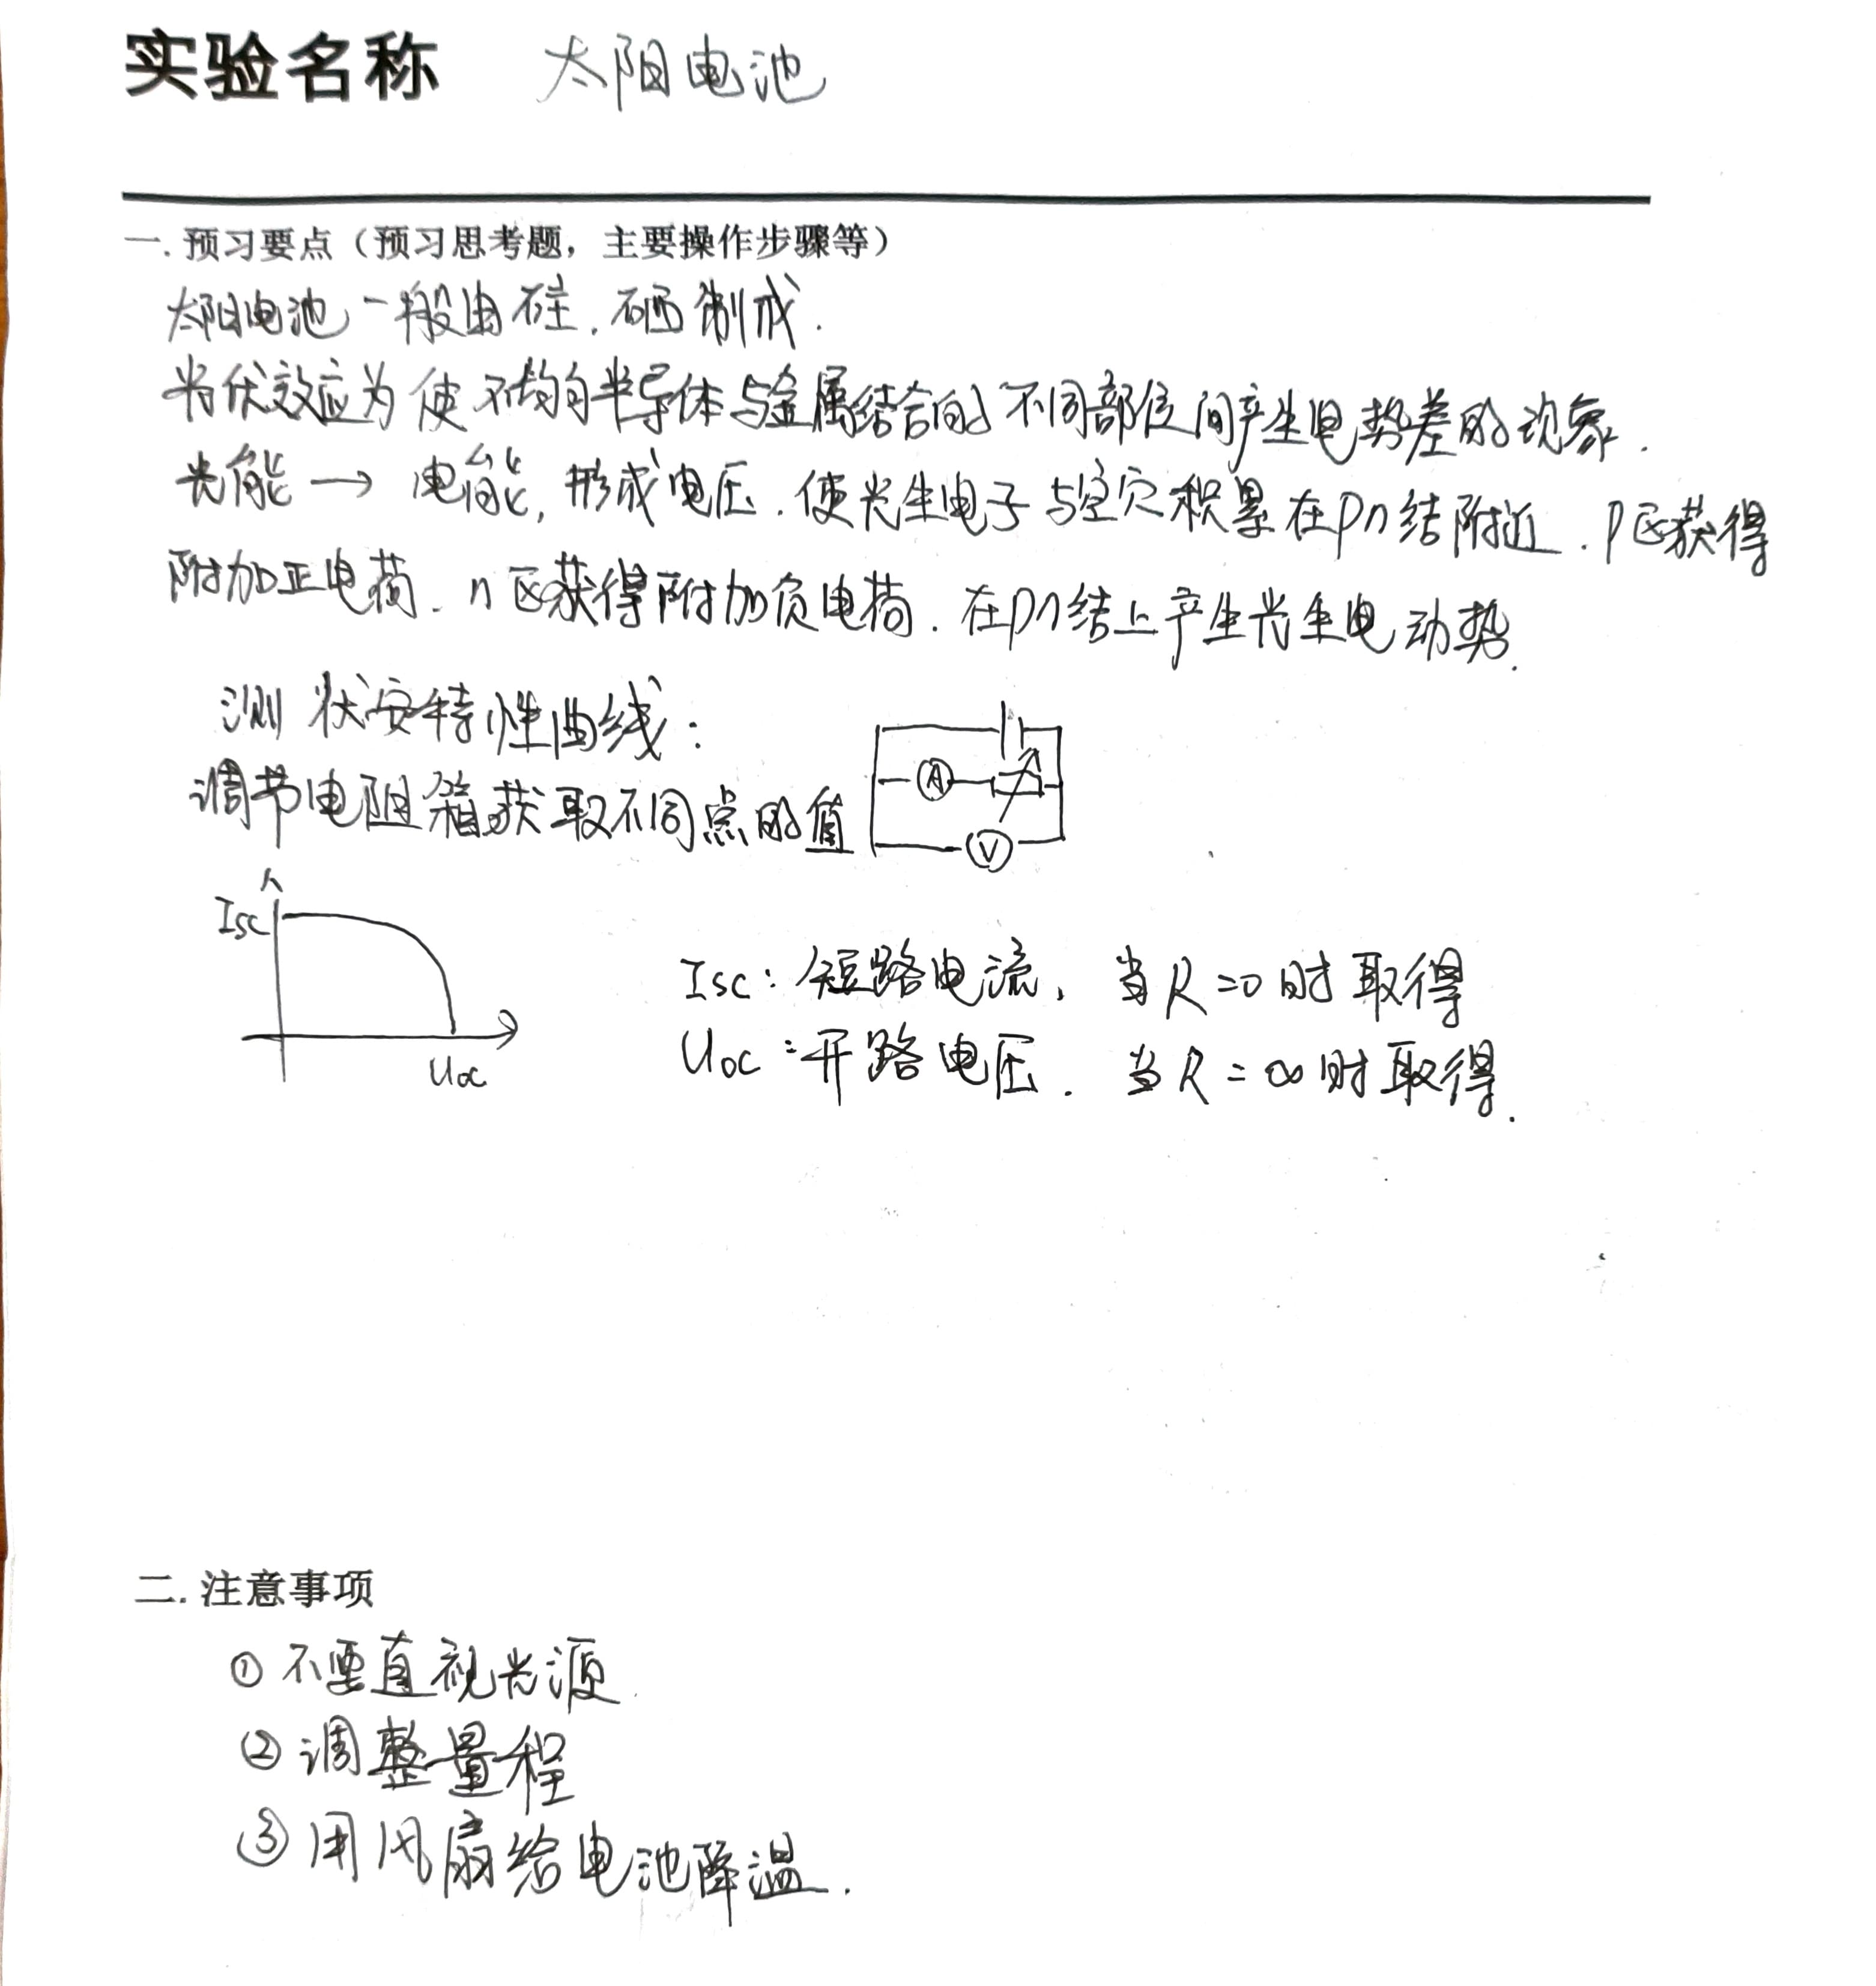 实验名称 太阳电池
一.预习要点（预习思考题，主要操作步骤等）
太阳电池一般由硅.硒制成.
光伏效应为使不均匀半导体与金属结合的不同部位间产生电势差的现象.
光能→电能,形成电压.使光生电子与空穴积累在pn结附近.p区获得
附加正电荷.n区获得附加负电荷.在pn结上产生光生电动势.
测伏安特性曲线:
调节电阻箱获取不同点的值
A
V
Isc
Uoc
Isc:短路电流,当R=0时取得
Uoc:开路电压.当R=∞时取得.
二.注意事项
①不要直视光源.
②调整量程
③用风扇给电池降温.